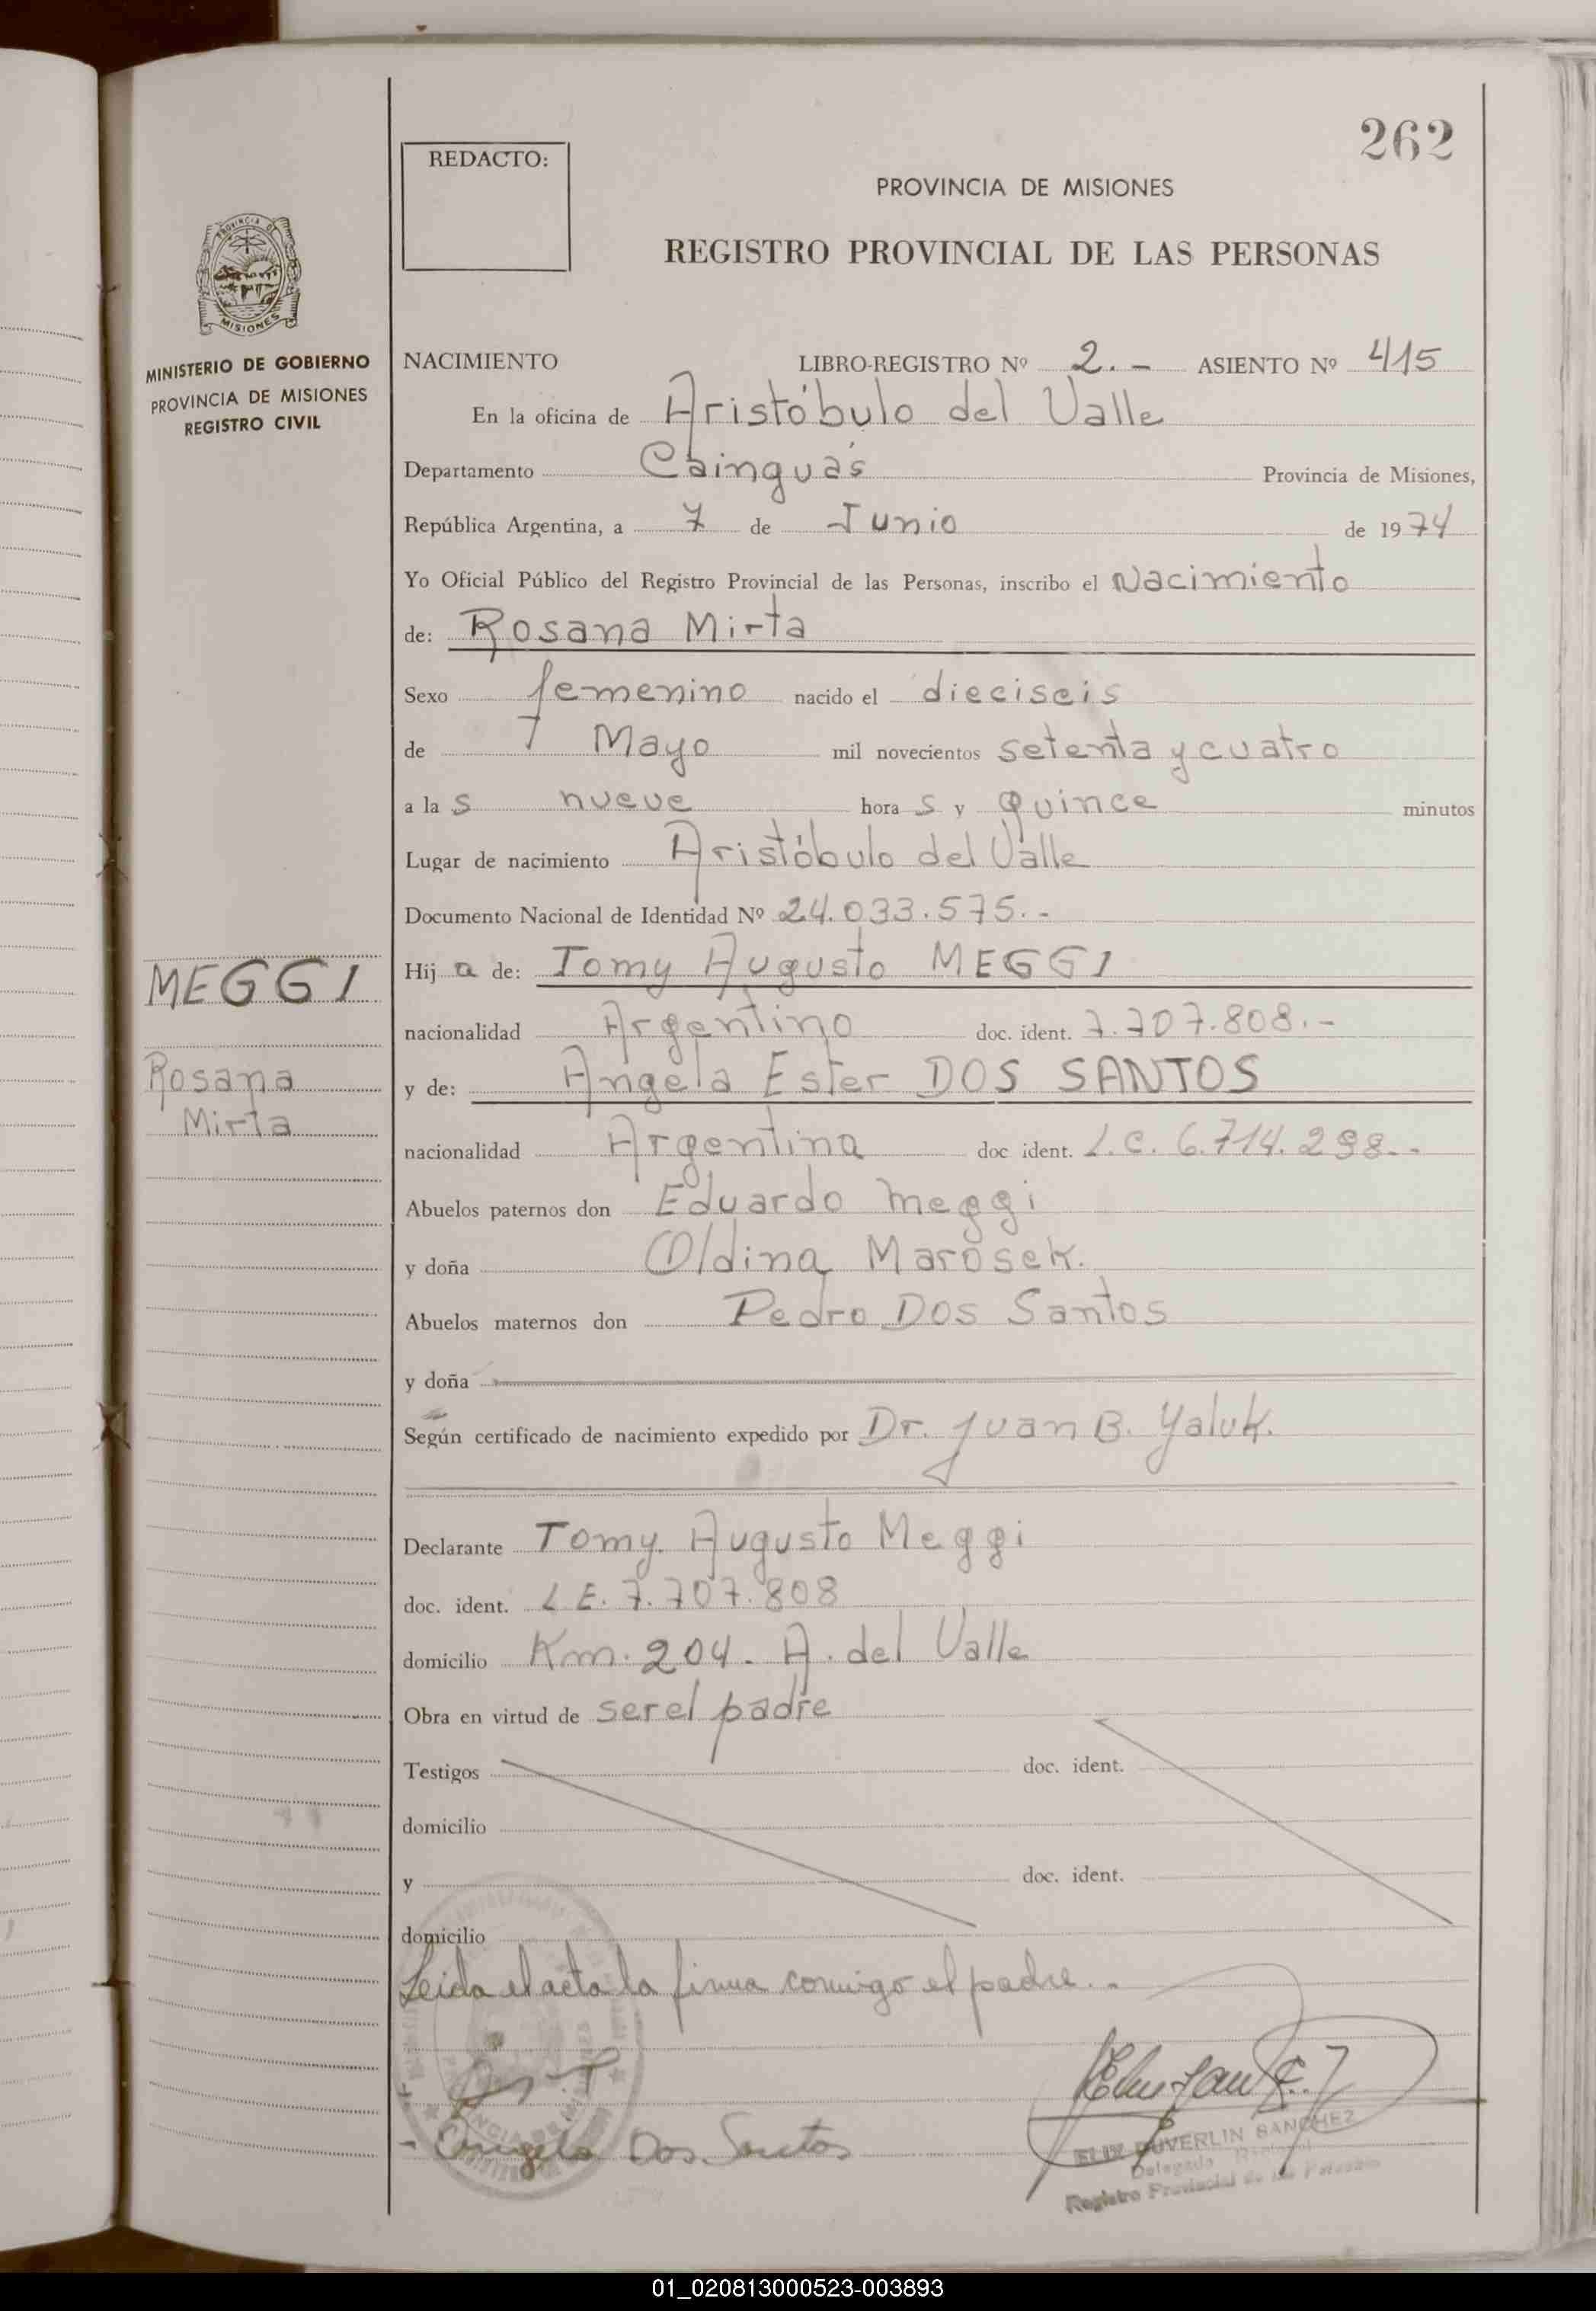 262
REDACTO:
PROVINCIA DE MISIONES
REGISTRO PROVINCIAL DE LAS PERSONAS
PROVINCIA DE
MISIONES
MINISTERIO DE GOBIERNO
PROVINCIA DE MISIONES
REGISTRO CIVIL
NACIMIENTO LIBRO-REGISTRO Nº 2.- ASIENTO Nº 415
En la oficina de Aristóbulo del Valle
Departamento Cainguás Provincia de Misiones,
República Argentina, a 7 de Junio de 1974
Yo Oficial Público del Registro Provincial de las Personas, inscribo el Nacimiento
de: Rosana Mirta
Sexo femenino nacido el dieciseis
de Mayo mil novecientos setenta y cuatro
a la s nueve hora s y Quince minutos
Lugar de nacimiento Aristóbulo del Valle
Documento Nacional de Identidad Nº 24.033.575.-
MEGGI
Hij a de: Tomy Augusto MEGGI
nacionalidad Argentino doc. ident. 7.707.808.-
Rosana
Mirta
y de: Angela Ester DOS SANTOS
nacionalidad Argentina doc ident. L.C. 6.714.298.-
Abuelos paternos don Eduardo Meggi
y doña Oldina Marosek.
Abuelos maternos don Pedro Dos Santos
y doña
Según certificado de nacimiento expedido por Dr. Juan B. Yaluk.
Declarante Tomy Augusto Meggi
doc. ident. L E. 7.707.808
domicilio Km. 204. A. del Valle
Obra en virtud de ser el padre
Testigos doc. ident.
domicilio
y doc. ident.
domicilio
Leida el acta la firma conmigo el padre.-
Dos Santos
DUVERLIN SANCHEZ
Registro Provincial de las Personas
01_020813000523-003893